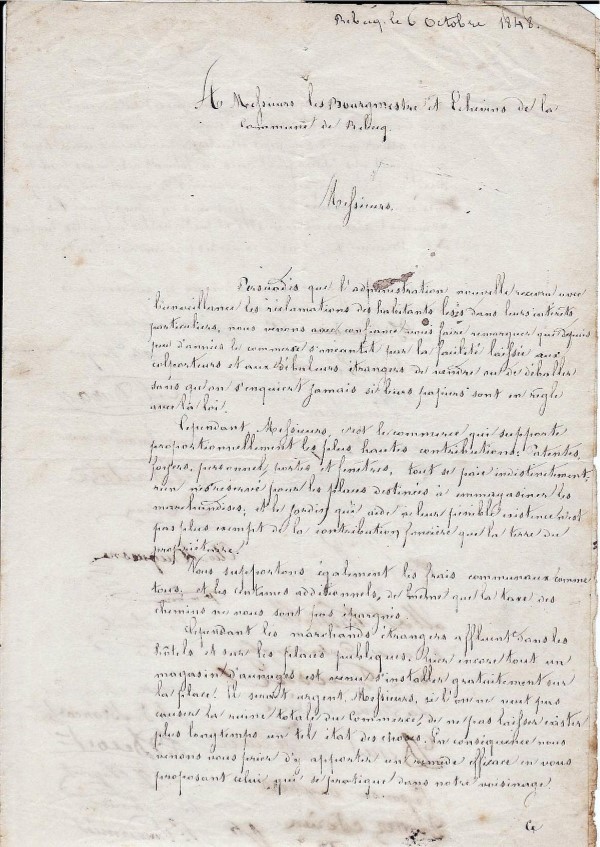 Rebecq, le 6 Octobre 1848.
A Messieurs les Bourgmestre et Echevins de la
Commune de Rebecq.
Messieurs,
Persuadés que l'administration nouvelle recevra avec
bienveillance les réclamations des habitants lésés dans leurs intérêts
particuliers, nous venons avec confiance vous faire remarquer que depuis
peu d'années le commerce s'anéantit par la facilité laissée aux
colporteurs et aux débaleurs étrangers de vendre ou de déballer
sans qu'on s'enquiert jamais si leurs papiers sont en règle
avec la loi.
Cependant, Messieurs, c'est le commerce qui supporte
proportionnellement les plus hautes contributions: Patentes,
foyers, personnel, portes et fenêtres, tout se paie indistinctement,
rien n'est réservé pour les places destinées à emmagasiner les
marchandises, et le jardin qui aide à leur pénible existence n'est
pas plus exempt de la contribution foncière que la terre du
propriétaire.
Nous supportons également les frais communaux comme
tous, et les centimes additionnels, de même que la taxe des
chemins ne nous sont pas épargnés.
Cependant les marchands étrangers affluent dans les
hôtels et sur les places publiques; hier encore tout un
magasin d'aunages est venu s'installer gratuitement sur
la place! il serait urgent, Messieurs, si l'on ne veut pas
causer la ruine totale du Commerce, de ne pas laisser exister
plus longtemps un tel état des choses. En conséquence nous
venons vous prier d'y apporter un remède efficace en vous
proposant celui qui se pratique dans notre voisinage.
Ce